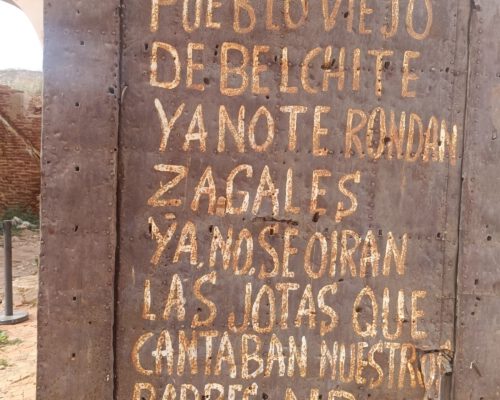 PUEBLO VIEJO
DE BELCHITE
YA NO TE RONDAN
ZAGALES
YA.NO.SE OIRAN
LAS JOTAS QUE
CANTABAN NUESTROS
PADRES